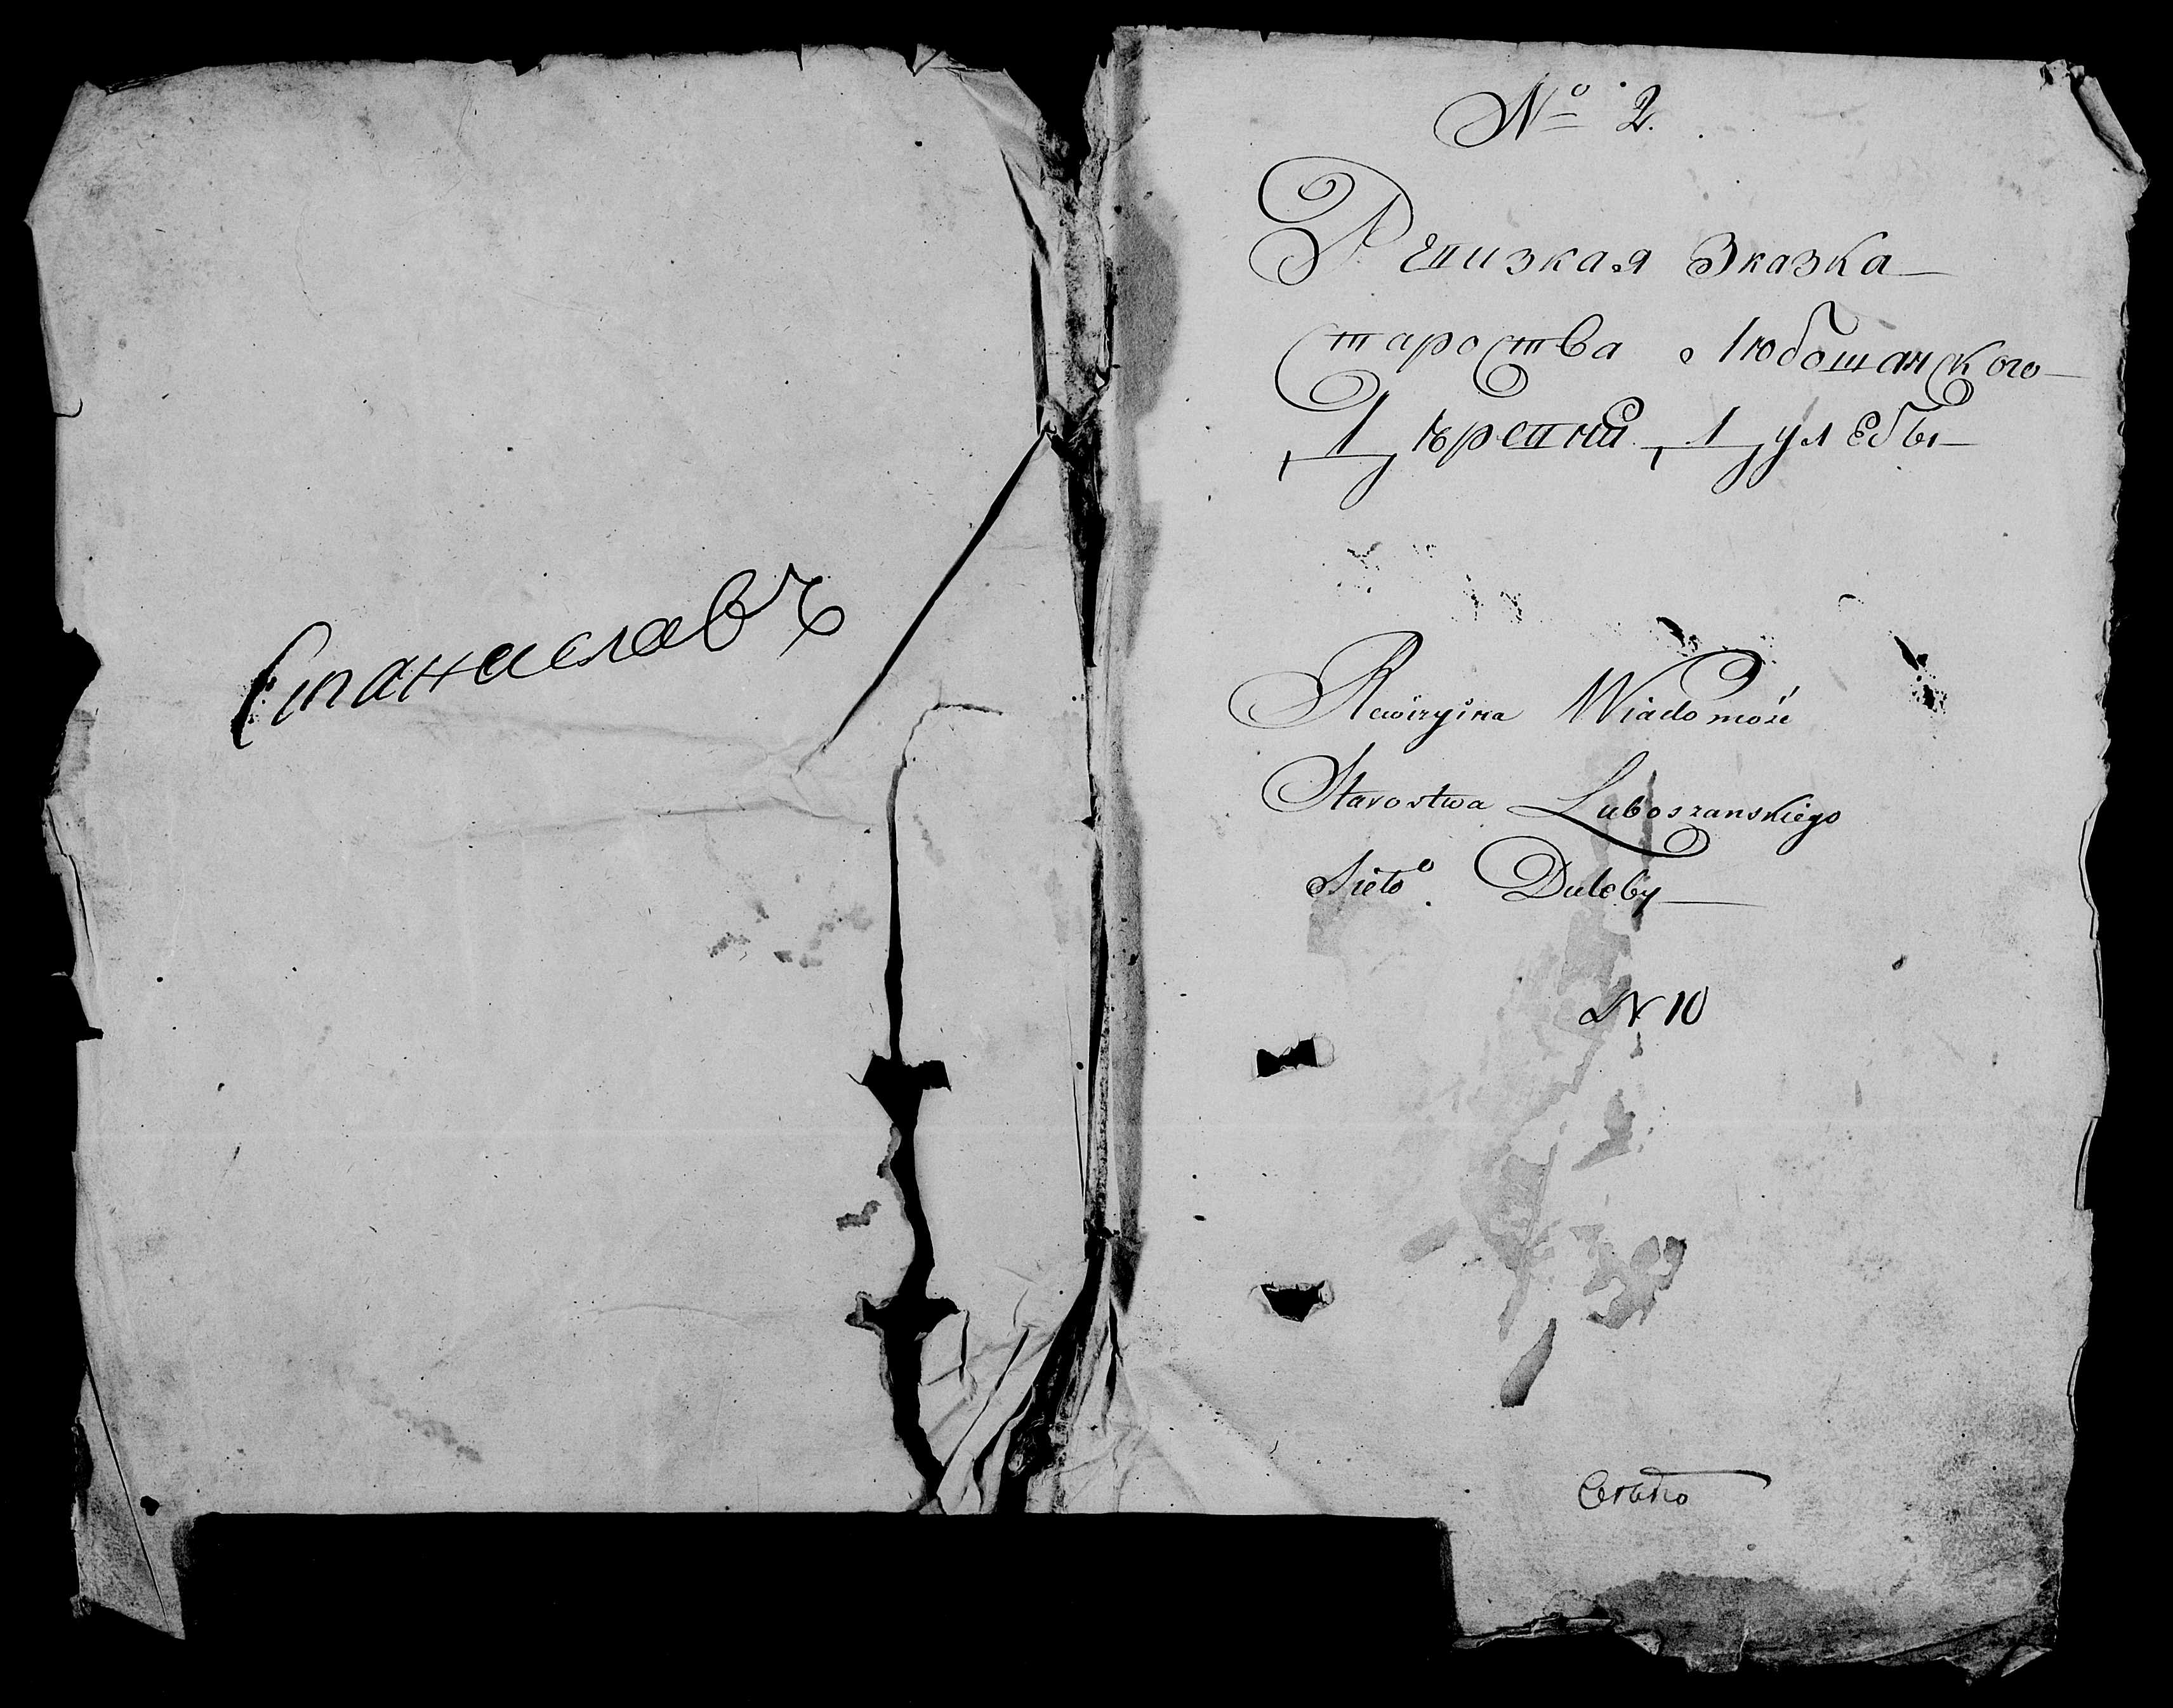 Станиславъ
№ 2.
Репизкая Зказка
Староства Любошанского
Дѣрепни Дулебы
Rewizyina Wiadomość
Starostwa Luboszanskiego
Sieło. Duleby
N 10